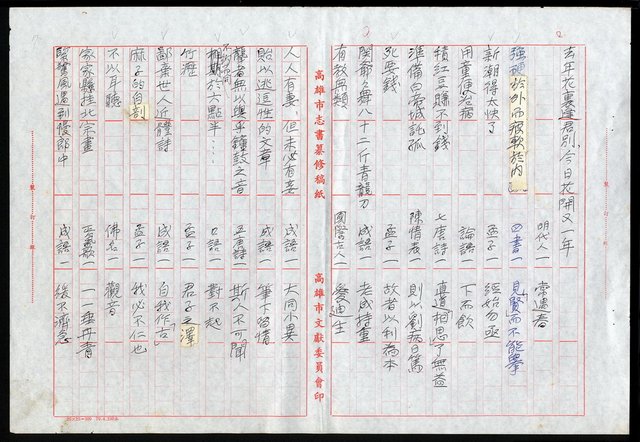 去年花裏逢君別，今日花開又一年　明代人一　常遇春
強硬於外而很軟於內　四書一　見賢而不能舉
新潮得太快了　孟子一　經始勿亟
用童便治病　論語一　下而飲
積紅豆賺不到錢　七唐詩一　直道相思了無益
準備白帝城託孤　陳情表一　則以劉病日篤
死要錢　孟子一　故者以利為本
關爺爺舞八十二斤青龍刀　成語一　老成持重
有教無類　國醫古人一　愛迪生
高雄市志書纂修稿紙　高雄市文獻委員會印
人人有妻，但未必有妾　成語一　大同小異
貽以逃這性的文章　成語一　筆下留情
聾者無以與乎鐘鼓之音　五唐詩一　斯人不可聞
不約相期於六點半⋯　口語一　對不起
竹瀝　孟子一　君子之澤
鄙棄世人近體詩　成語一　自我作古
麻子的自剖　孟子一　我必不仁也
不以耳聽　佛名一　觀音
家家懸挂北宗畫　正氣歌一　一一垂丹青
緊驚風遇到慢郎中　成語一　緩不濟急
裝訂線
裝訂線